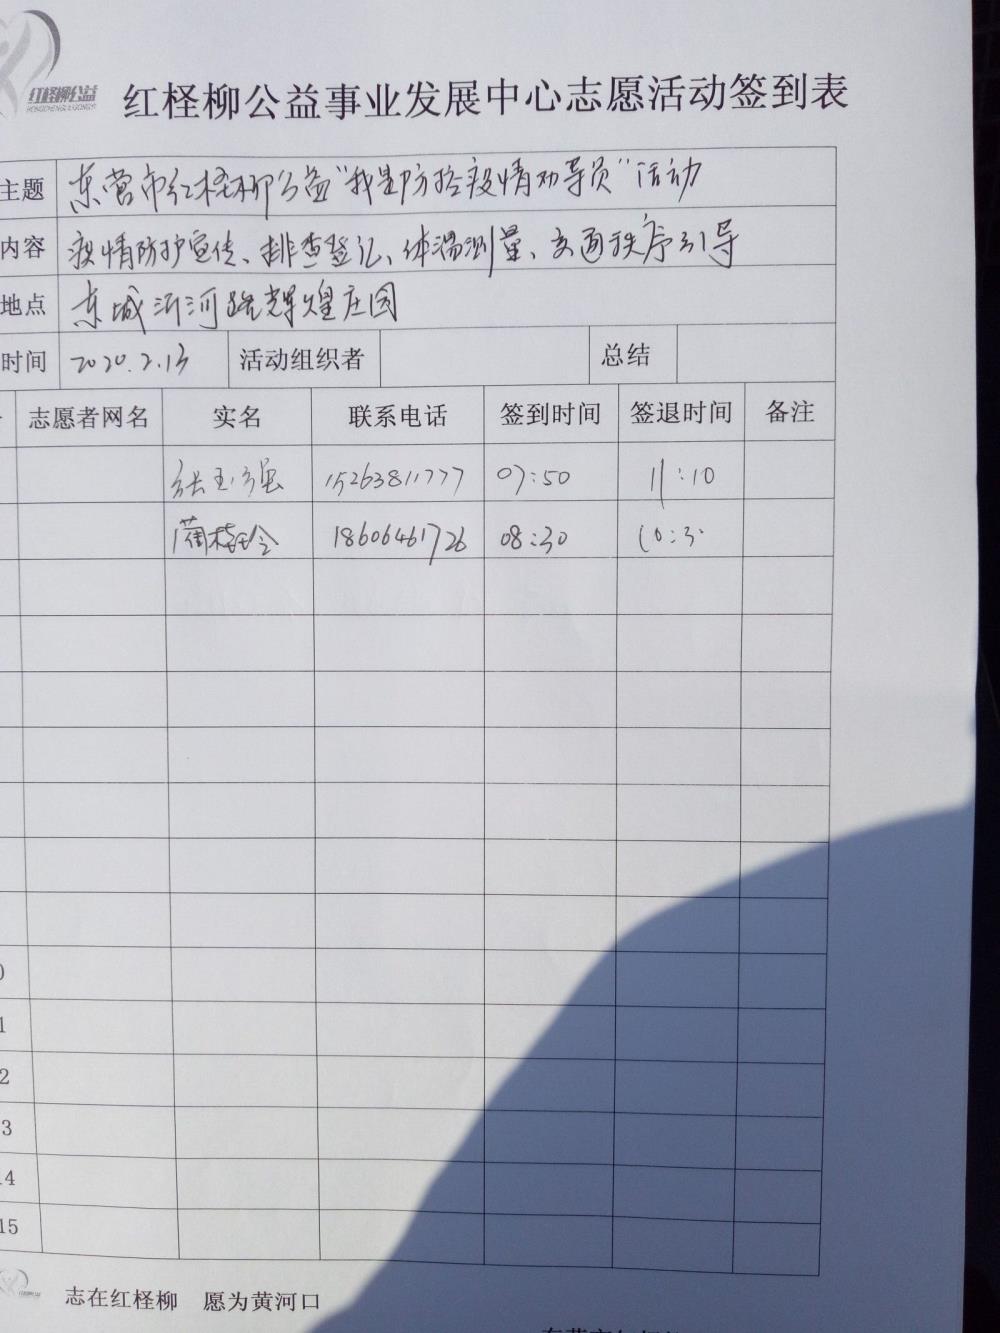 红柽柳公益
红柽柳公益事业发展中心志愿活动签到表
主题 东营市红柽柳公益"我是防控疫情劝导员"活动
内容 疫情防护宣传、排查登记、体温测量、交通秩序引导
地点 东城沂河路辉煌庄园
时间 2020.2.13 活动组织者 总结
志愿者网名 实名 联系电话 签到时间 签退时间 备注
张玉强 15263811777 07:50 11:10
蔺桂玲 18606461726 08:30 10:3
0
1
2
3
14
15
志在红柽柳 愿为黄河口